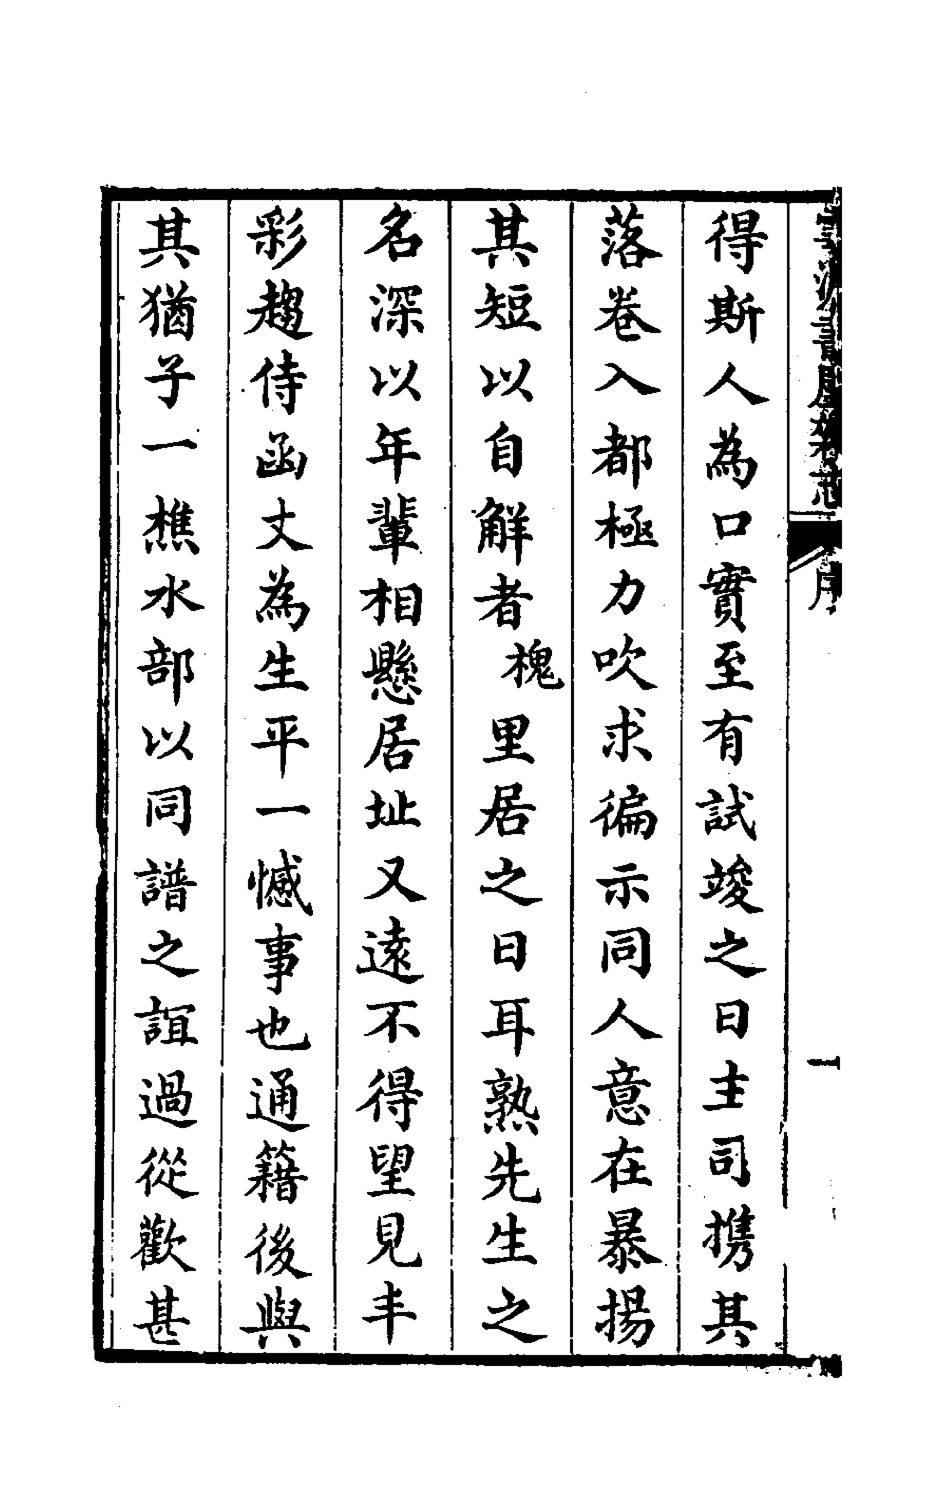 得斯人為口實至有試竣之日主司携其
落卷入都極力吹求徧示同人意在暴揚
其短以自解者槐里居之日耳熟先生之
名深以年輩相懸居址又遠不得望見丰
彩趨侍函丈為生平一憾事也通籍後與
其猶子一樵水部以同譜之誼過從歡甚
序
一